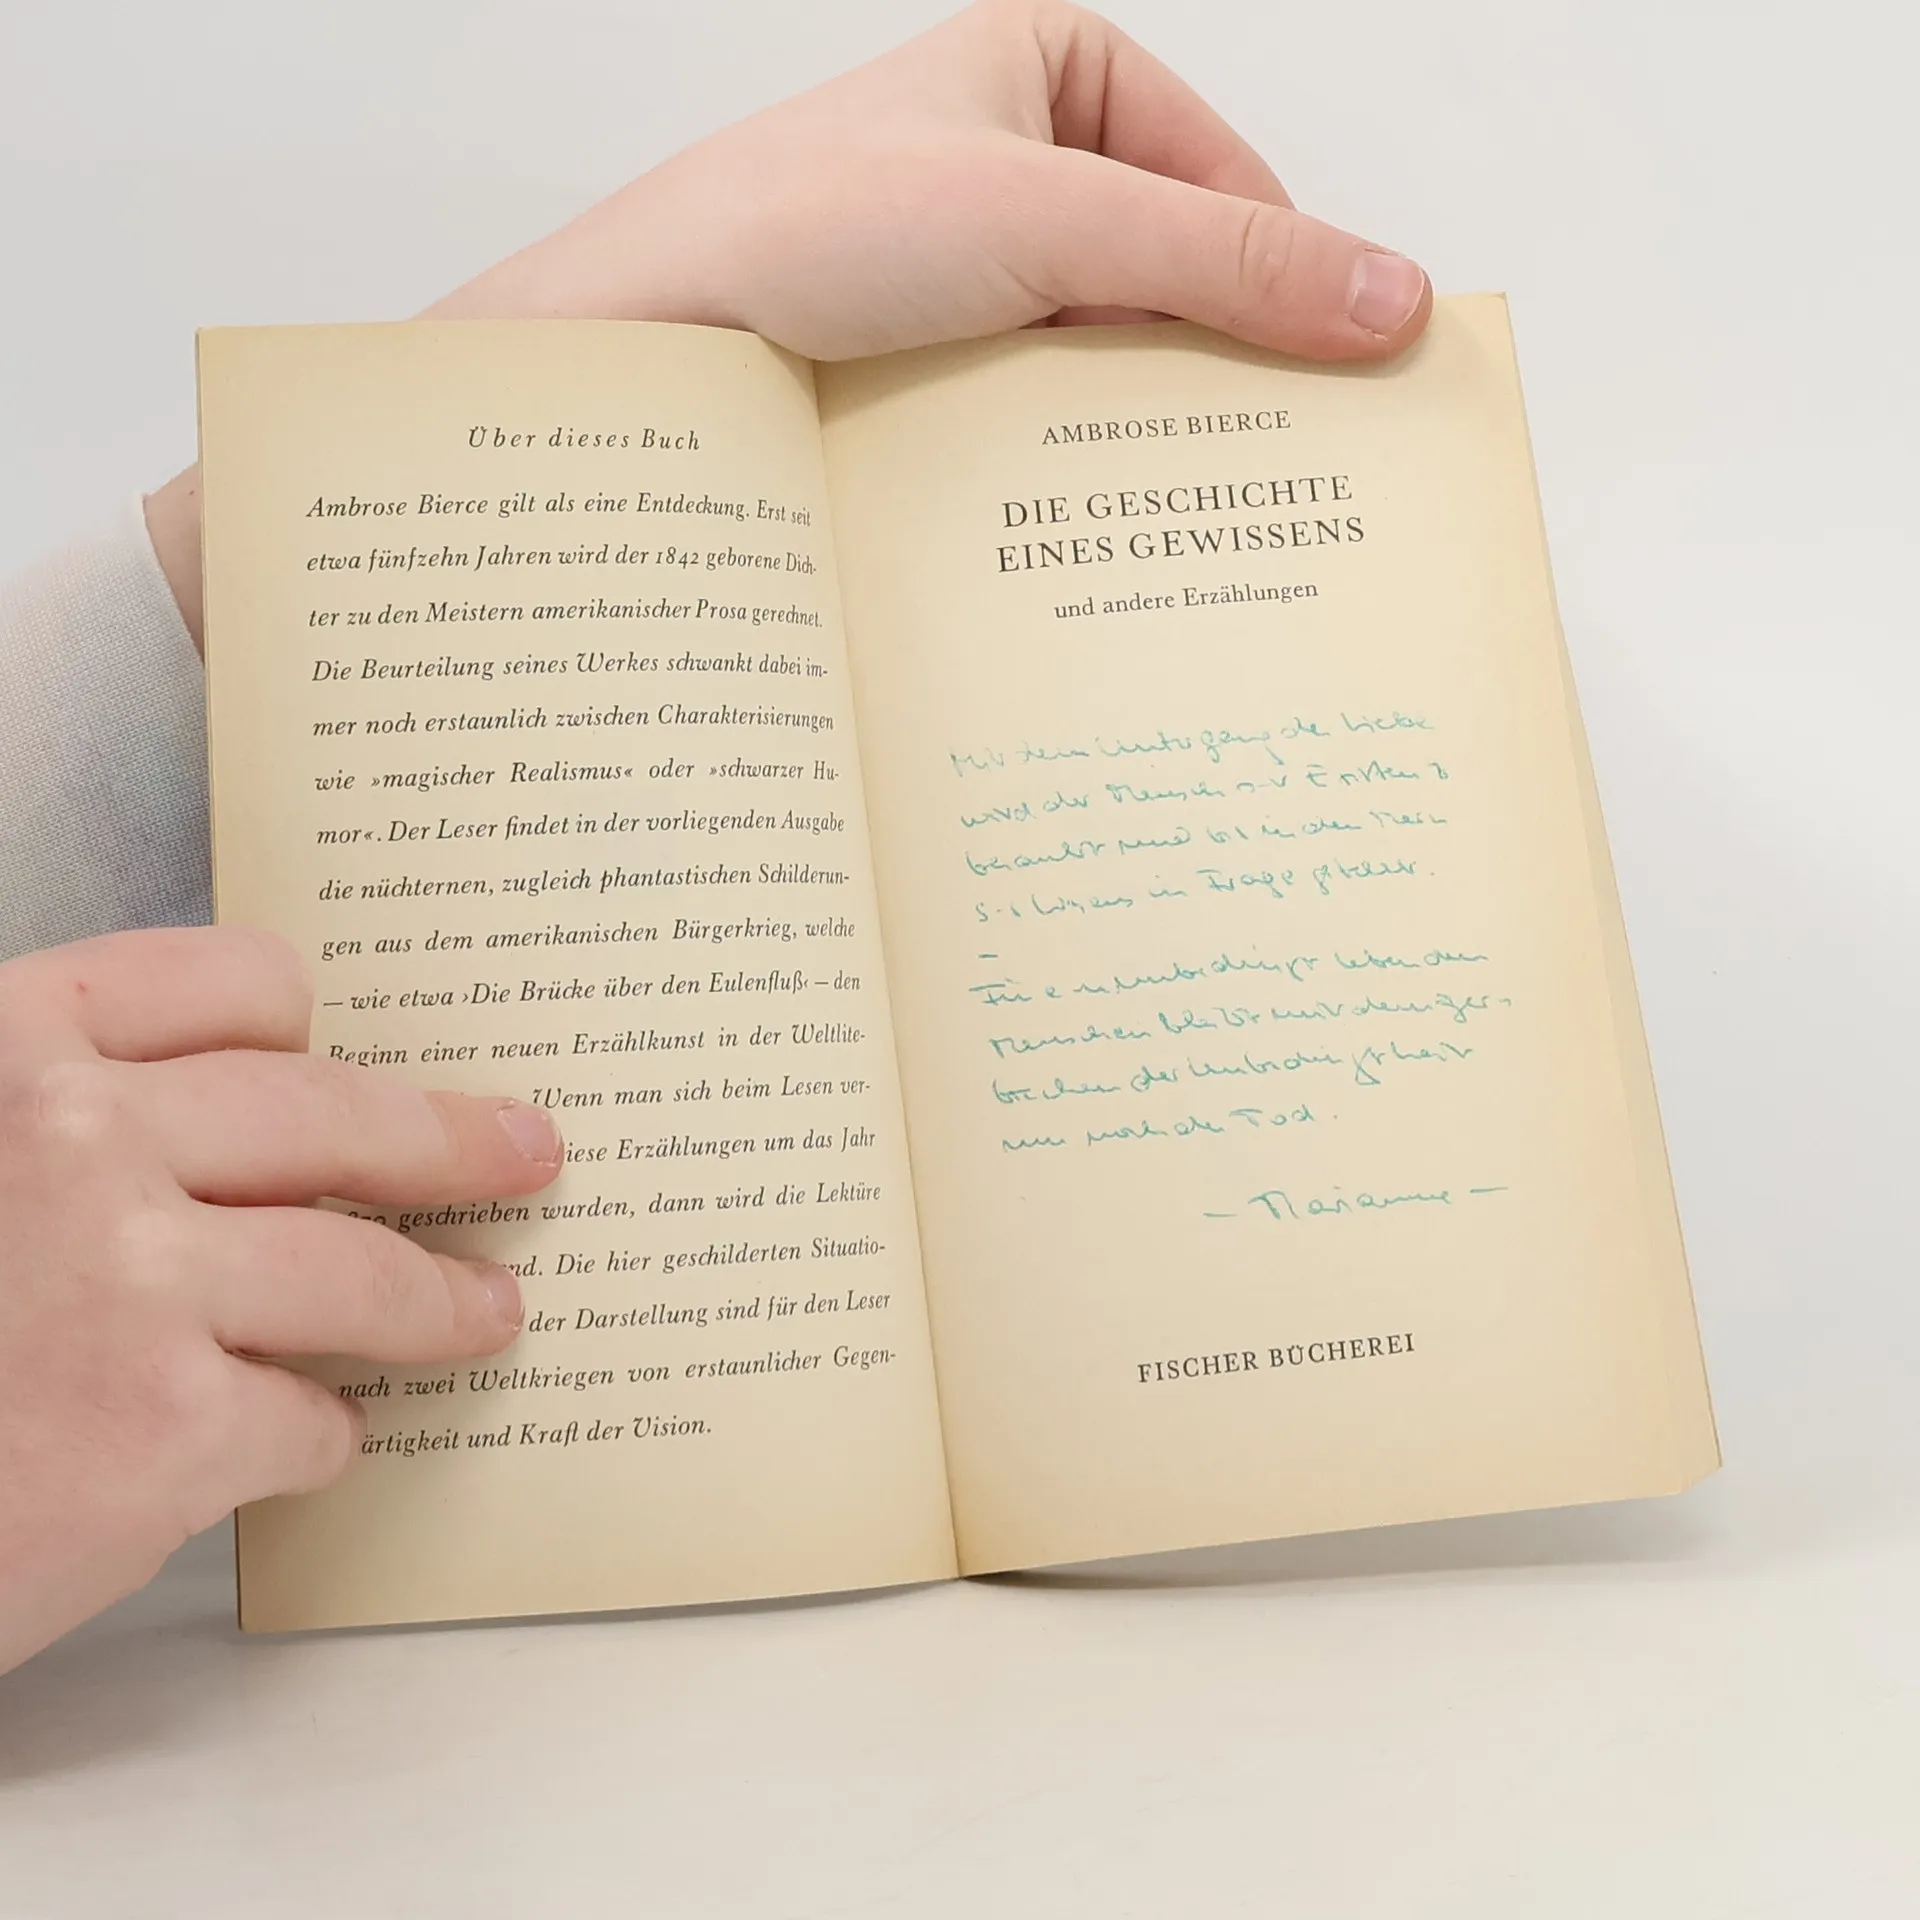 Über dieses Buch
Ambrose Bierce gilt als eine Entdeckung. Erst seit
etwa fünfzehn Jahren wird der 1842 geborene Dich-
ter zu den Meistern amerikanischer Prosa gerechnet.
Die Beurteilung seines Werkes schwankt dabei im-
mer noch erstaunlich zwischen Charakterisierungen
wie »magischer Realismus« oder »schwarzer Hu-
mor«. Der Leser findet in der vorliegenden Ausgabe
die nüchternen, zugleich phantastischen Schilderun-
gen aus dem amerikanischen Bürgerkrieg, welche
— wie etwa ›Die Brücke über den Eulenfluß‹ — den
Beginn einer neuen Erzählkunst in der Weltlite-
Wenn man sich beim Lesen ver-
iese Erzählungen um das Jahr
geschrieben wurden, dann wird die Lektüre
nd. Die hier geschilderten Situatio-
der Darstellung sind für den Leser
nach zwei Weltkriegen von erstaunlicher Gegen-
ärtigkeit und Kraft der Vision.
AMBROSE BIERCE
DIE GESCHICHTE
EINES GEWISSENS
und andere Erzählungen
Mit dem Untergang der Liebe
wird der Mensch der
beraubt und bis in den Kern
in Frage gestellt.
–
Für unbedingt lebenden
Menschen bleibt mit dem Zer-
brechen der Unbedingtheit
nur noch der Tod.
– Marianne –
FISCHER BÜCHEREI